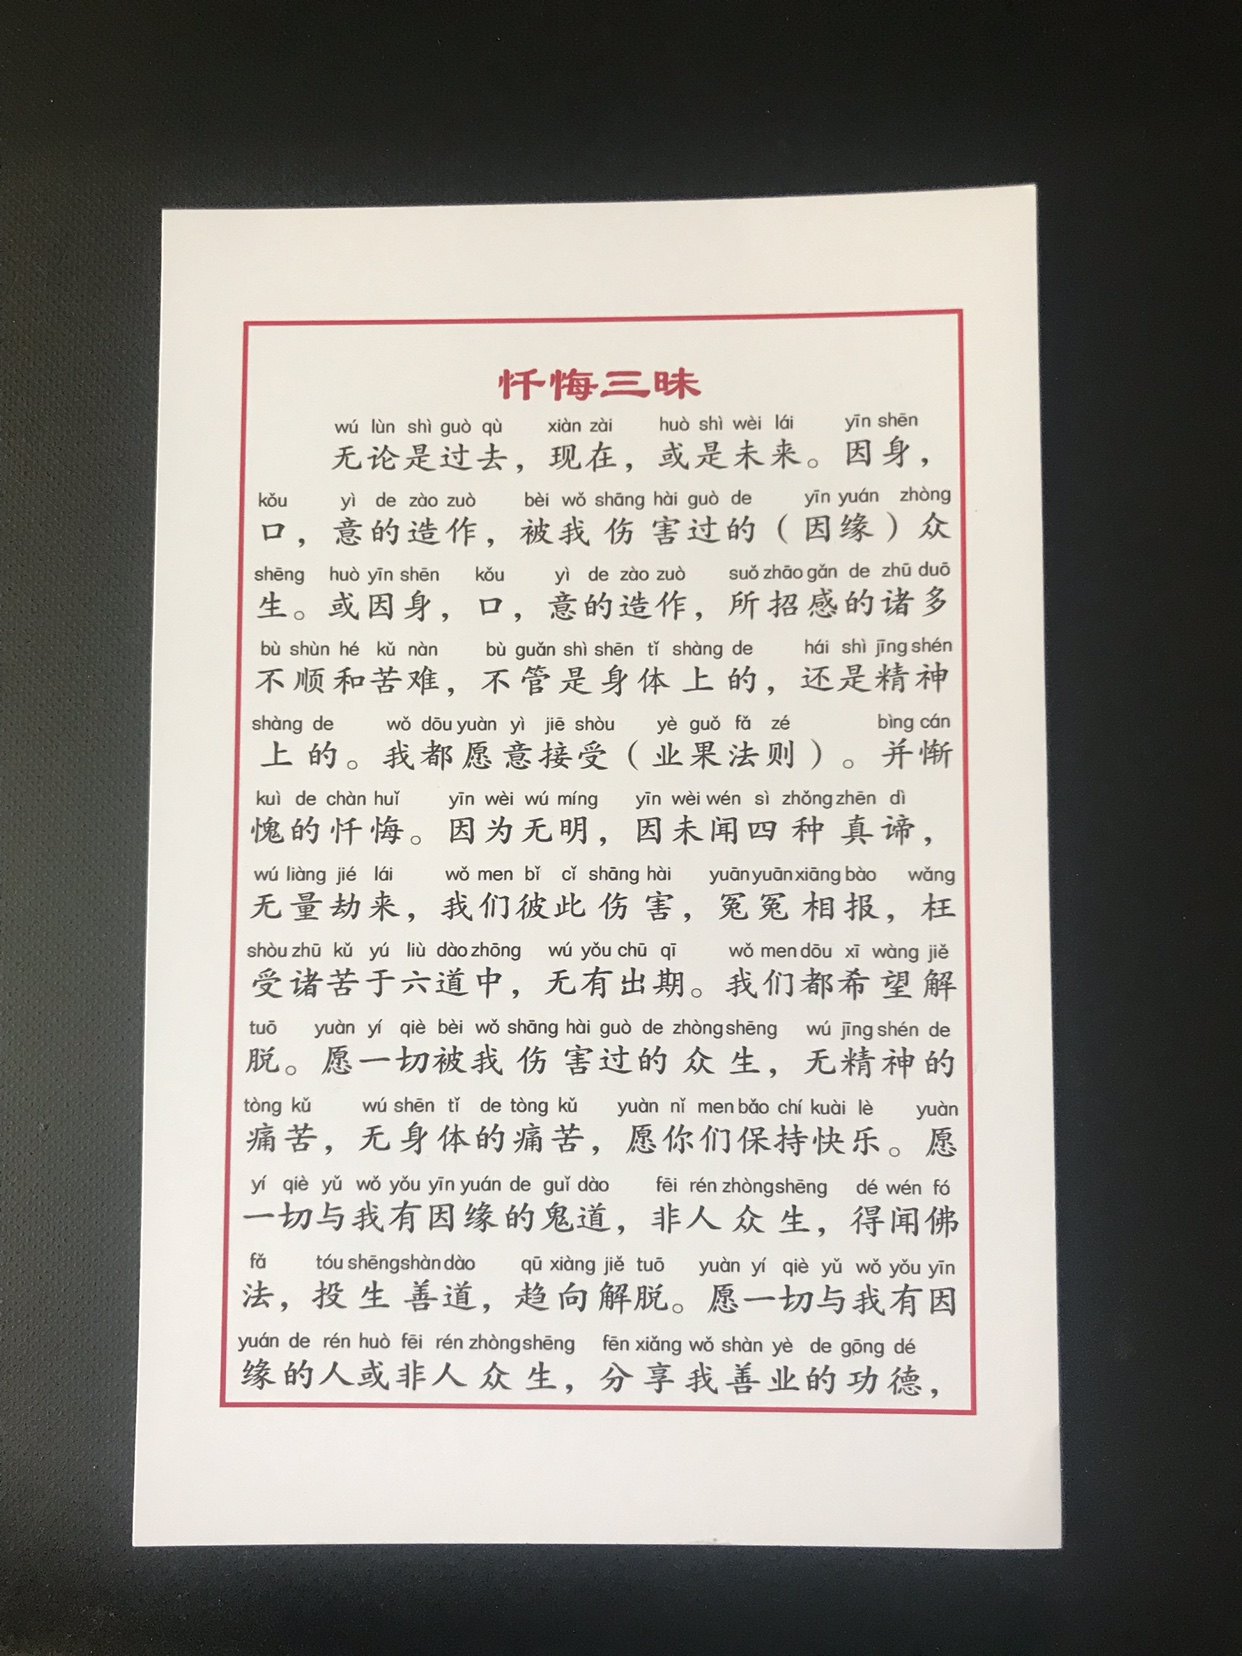 忏悔三昧
wú lùn shì guò qù xiàn zài huò shì wèi lái yīn shēn
无论是过去，现在，或是未来。因身，
kǒu yì de zào zuò bèi wǒ shāng hài guò de yīn yuán zhòng
口，意的造作，被我伤害过的（因缘）众
shēng huò yīn shēn kǒu yì de zào zuò suǒ zhāo gǎn de zhū duō
生。或因身，口，意的造作，所招感的诸多
bù shùn hé kǔ nàn bù guǎn shì shēn tǐ shàng de hái shì jīng shén
不顺和苦难，不管是身体上的，还是精神
shàng de wǒ dōu yuàn yì jiē shòu yè guǒ fǎ zé bìng cán
上的。我都愿意接受（业果法则）。并惭
kuì de chàn huǐ yīn wèi wú míng yīn wèi wén sì zhǒng zhēn dì
愧的忏悔。因为无明，因未闻四种真谛，
wú liàng jié lái wǒ men bǐ cǐ shāng hài yuān yuān xiāng bào wǎng
无量劫来，我们彼此伤害，冤冤相报，枉
shòu zhū kǔ yú liù dào zhōng wú yǒu chū qī wǒ men dōu xī wàng jiě
受诸苦于六道中，无有出期。我们都希望解
tuō yuàn yí qiè bèi wǒ shāng hài guò de zhòng shēng wú jīng shén de
脱。愿一切被我伤害过的众生，无精神的
tòng kǔ wú shēn tǐ de tòng kǔ yuàn nǐ men bǎo chí kuài lè yuàn
痛苦，无身体的痛苦，愿你们保持快乐。愿
yí qiè yǔ wǒ yǒu yīn yuán de guǐ dào fēi rén zhòng shēng dé wén fó
一切与我有因缘的鬼道，非人众生，得闻佛
fǎ tóu shēng shàn dào qū xiàng jiě tuō yuàn yí qiè yǔ wǒ yǒu yīn
法，投生善道，趋向解脱。愿一切与我有因
yuán de rén huò fēi rén zhòng shēng fēn xiǎng wǒ shàn yè de gōng dé
缘的人或非人众生，分享我善业的功德，